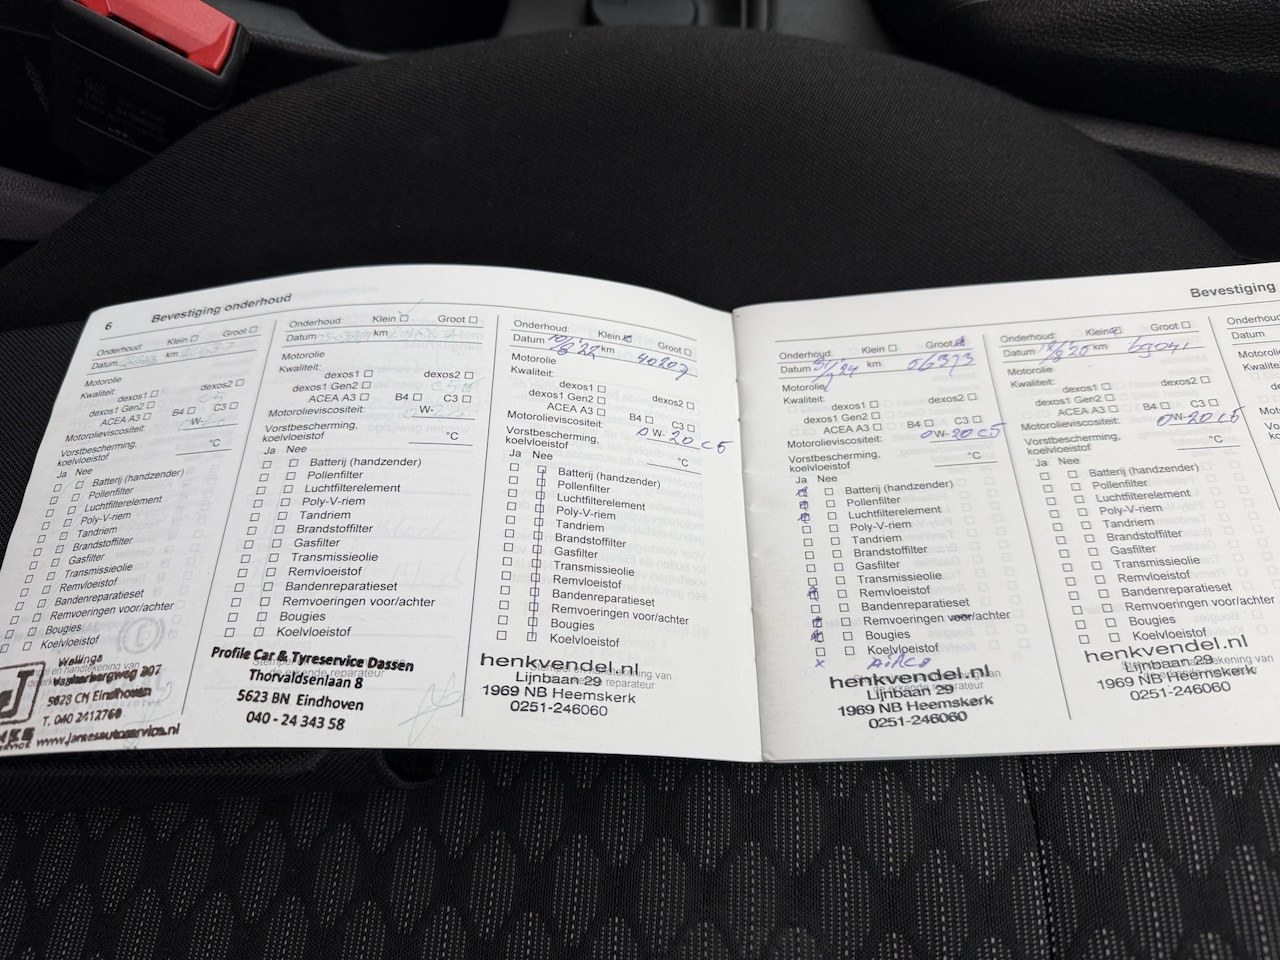 6 Bevestiging onderhoud
Onderhoud: Klein Groot
Datum km
Motorolie
Kwaliteit:
dexos1 dexos2
dexos1 Gen2
ACEA A3 B4 C3
Motorolieviscositeit: W-
Vorstbescherming, °C
koelvloeistof
Ja Nee
Batterij (handzender)
Pollenfilter
Luchtfilterelement
Poly-V-riem
Tandriem
Brandstoffilter
Gasfilter
Transmissieolie
Remvloeistof
Bandenreparatieset
Remvoeringen voor/achter
Bougies
Koelvloeistof
Eindhoven
T. 040 2412760
Onderhoud: Klein Groot
Datum km
Motorolie
Kwaliteit:
dexos1 dexos2
dexos1 Gen2
ACEA A3 B4 C3
Motorolieviscositeit: W-
Vorstbescherming, °C
koelvloeistof
Ja Nee
Batterij (handzender)
Pollenfilter
Luchtfilterelement
Poly-V-riem
Tandriem
Brandstoffilter
Gasfilter
Transmissieolie
Remvloeistof
Bandenreparatieset
Remvoeringen voor/achter
Bougies
Koelvloeistof
Profile Car & Tyreservice Dassen
Thorvaldsenlaan 8
5623 BN Eindhoven
040 - 24 343 58
Onderhoud: Klein Groot
Datum km 40207
Motorolie
Kwaliteit:
dexos1 dexos2
dexos1 Gen2
ACEA A3 B4 C3
Motorolieviscositeit: 0 W- 20 C5
Vorstbescherming, °C
koelvloeistof
Ja Nee
Batterij (handzender)
Pollenfilter
Luchtfilterelement
Poly-V-riem
Tandriem
Brandstoffilter
Gasfilter
Transmissieolie
Remvloeistof
Bandenreparatieset
Remvoeringen voor/achter
Bougies
Koelvloeistof
henkvendel.nl
Lijnbaan 29
1969 NB Heemskerk
0251-246060
Bevestiging
Onderhoud: Klein Groot
Datum km 56373
Motorolie
Kwaliteit:
dexos1 dexos2
dexos1 Gen2
ACEA A3 B4 C3
Motorolieviscositeit: 0 W- 20 C5
Vorstbescherming, °C
koelvloeistof
Ja Nee
Batterij (handzender)
Pollenfilter
Luchtfilterelement
Poly-V-riem
Tandriem
Brandstoffilter
Gasfilter
Transmissieolie
Remvloeistof
Bandenreparatieset
Remvoeringen voor/achter
Bougies
Koelvloeistof
x AIRCO
henkvendel.nl
Lijnbaan 29
1969 NB Heemskerk
0251-246060
Onderhoud: Klein Groot
Datum km
Motorolie
Kwaliteit:
dexos1 dexos2
dexos1 Gen2
ACEA A3 B4 C3
Motorolieviscositeit: 0 W- 20 C5
Vorstbescherming, °C
koelvloeistof
Ja Nee
Batterij (handzender)
Pollenfilter
Luchtfilterelement
Poly-V-riem
Tandriem
Brandstoffilter
Gasfilter
Transmissieolie
Remvloeistof
Bandenreparatieset
Remvoeringen voor/achter
Bougies
Koelvloeistof
henkvendel.nl
Lijnbaan 29
1969 NB Heemskerk
0251-246060
Onderhoud:
Datum